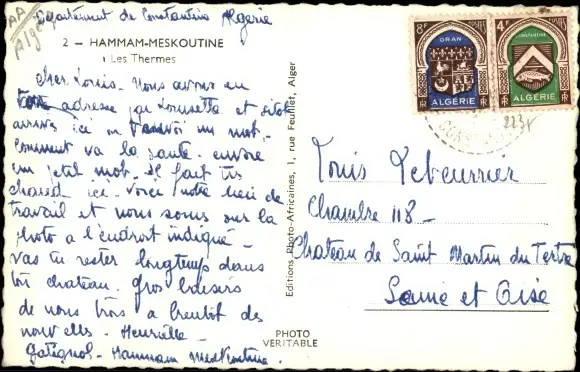 Département de Constantine Algérie
2 – HAMMAM-MESKOUTINE
Les Thermes
Cher Louis. Nous avons eu
adresse par Lousette et sitôt
arrivés ici on t'envoi un mot.
Comment va la santé. envoie
un petit mot. il fait très
chaud ici. Voici notre lieu de
travail et nous sous sur la
photo a l'endroit indiqué –
Vas tu rester longtemps dans
ton chateau. Gros baisers
de nous trois a bientot des
nouvelles. Henriette
Gatignol. Hammam Meskoutine.
Editions Photo-Africaines, 1, rue Feuillet, Alger
PHOTO
VERITABLE
8F
ORAN
ALGÉRIE
4F
CONSTANTINE
ALGÉRIE
Louis Lebeurrier
Chambre 118 –
Chateau de Saint Martin du Tertre
Seine et Oise